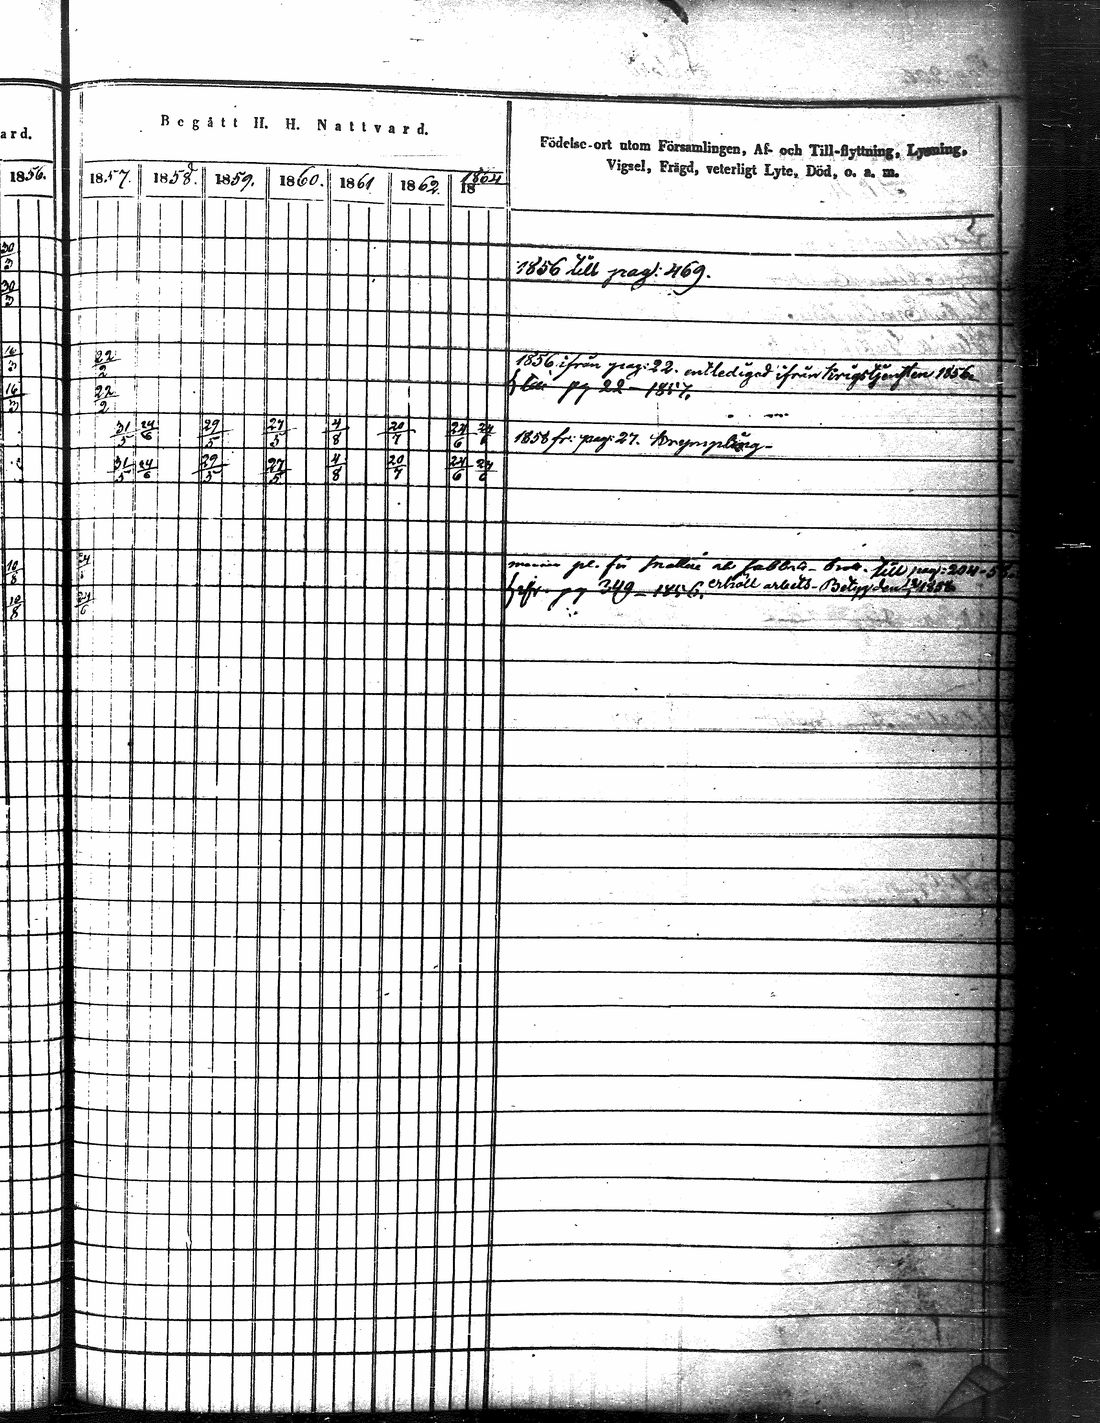 ard.
Begått H. H. Nattvard.
Födelse-ort utom Församlingen, Af- och Till-flyttning, Lysning,
Vigsel, Frägd, veterligt Lyte, Död, o. a. m.
1856. 1857. 1858. 1859. 1860. 1861 1862. 18 1864
30/3
1856 till pag: 469.
30/3
16/3 22/2 1856 ifrån pag: 22. entledigad ifrån krigstjensten 1856.
16/3 22/2 till pg 22 - 1857.
31/5 24/6 29/5 27/5 4/8 20/7 24/6 24/6 1858 fr: pag: 27. Krympling
31/5 24/6 29/5 27/5 4/8 20/7 24/6 24/6
10/8 24/6 pl. för af till pag: 204-58.
10/8 24/6 pg 349 - 1856. erhöll arbets-Betyg den 1858